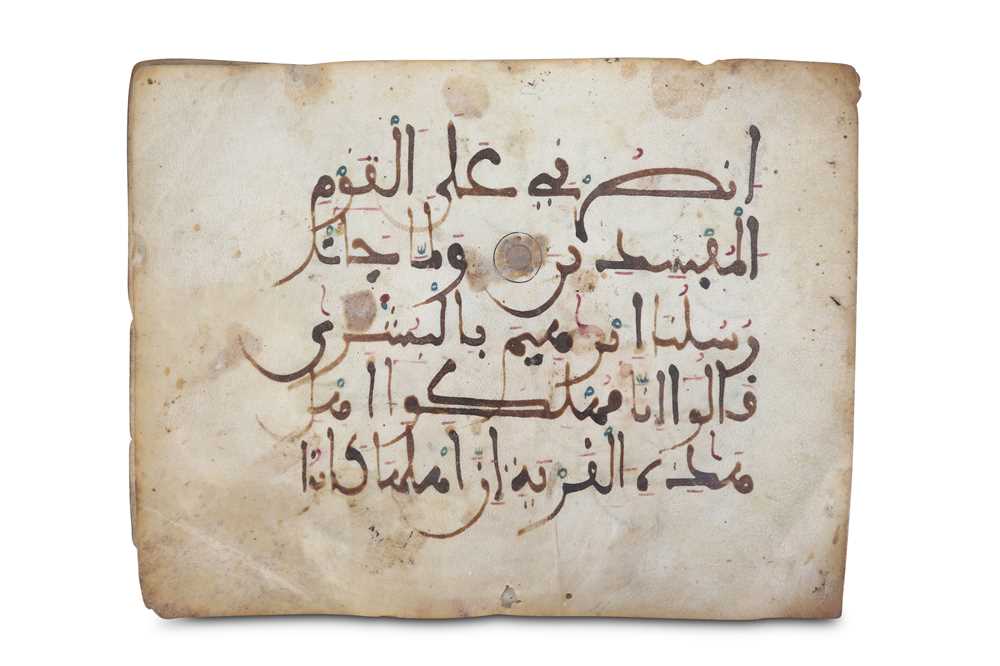 انصرني على القوم
المفسدين ولما جاءت
رسلنا ابرهيم بالبشرى
قالوا انا مهلكوا اهل
هذه القرية ان اهلها كانوا